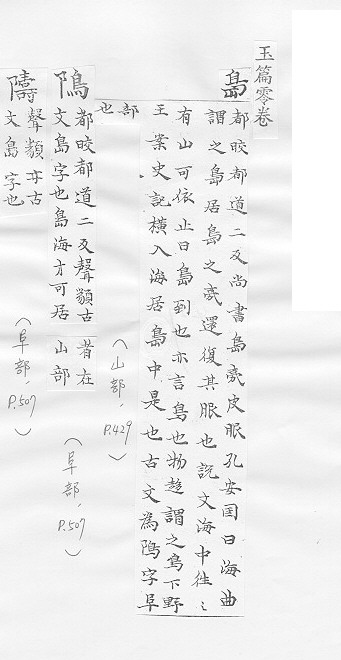 玉篇零卷
島 都晈都道二反尚書島夷皮服孔安国曰海曲
謂之島居島之夷還復其服也説文海中往〻
有山可依止曰島到也亦言鳥也物赴謂之鳥下野
王案史記橫入海居島中是也古文為隝字阜
部也
(山部, P.429)
隝 都晈都道二反聲類古
文島字也島海中可居
者在山部
(阜部, P.507)
隯 聲類亦古
文島字也
(阜部, P.507)